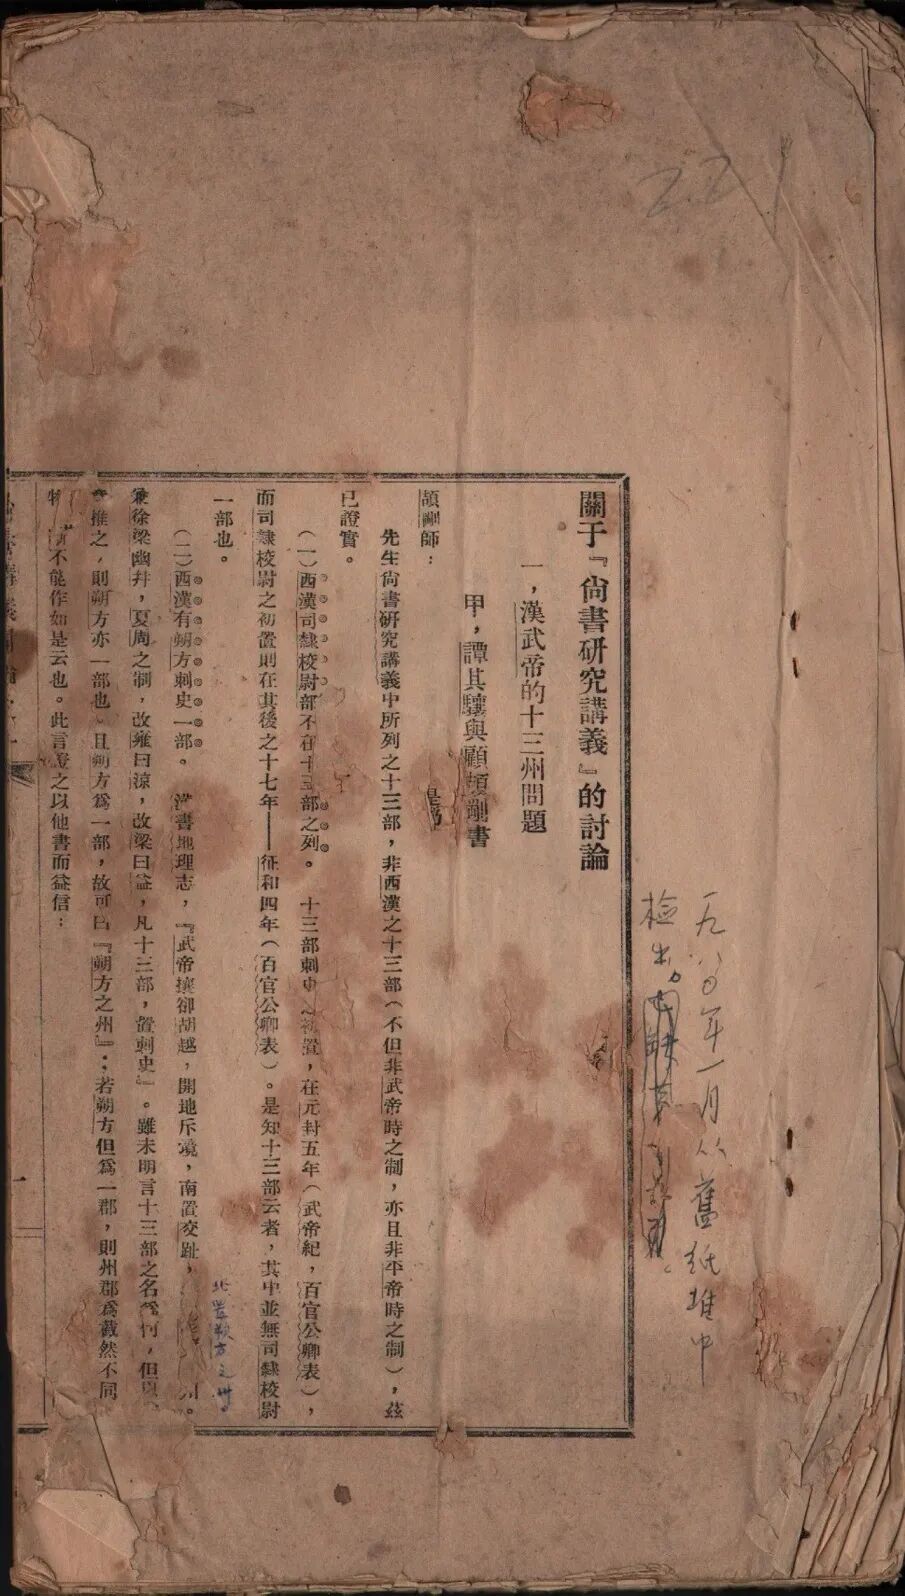 22
一九八〇年一月从舊紙堆中
檢出。
關于『尙書硏究講義』的討論
一，漢武帝的十三州問題
甲，譚其驤與顧頡剛書
頡剛師：
先生尙書硏究講義中所列之十三部，非西漢之十三部（不但非武帝時之制，亦且非平帝時之制），茲
已證實。
（一）西漢司隸校尉部不在十三部之列。　十三部刺史之初置，在元封五年（武帝紀，百官公卿表），
而司隸校尉之初置則在其後之十七年——征和四年（百官公卿表）。是知十三部云者，其中並無司隸校尉
一部也。
（二）西漢有朔方刺史一部。　漢書地理志，『武帝攘卻胡越，開地斥境，南置交趾，
北置朔方之州。
兼徐梁幽幷，夏周之制，改雍曰涼，改梁曰益，凡十三部，置刺史』。雖未明言十三部之名爲何，但以
推之，則朔方亦一部也。且朔方爲一部，故可曰『朔方之州』；若朔方但爲一郡，則州郡爲截然不同
不能作如是云也。此言證之以他書而益信：
一